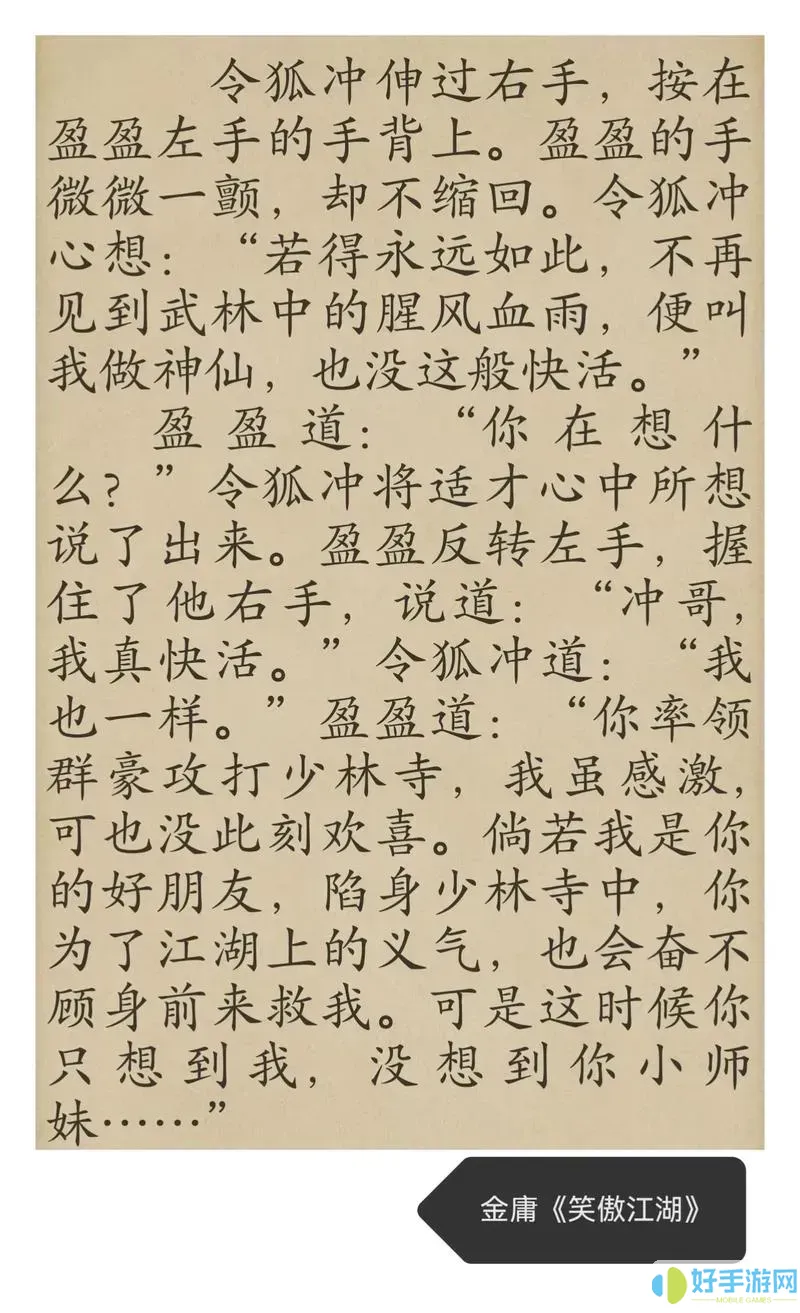 令狐冲伸过右手，按在
盈盈左手的手背上。盈盈的手
微微一颤，却不缩回。令狐冲
心想：“若得永远如此，不再
见到武林中的腥风血雨，便叫
我做神仙，也没这般快活。”
盈盈道：“你在想什
么？”令狐冲将适才心中所想
说了出来。盈盈反转左手，握
住了他右手，说道：“冲哥，
我真快活。”令狐冲道：“我
也一样。”盈盈道：“你率领
群豪攻打少林寺，我虽感激，
可也没此刻欢喜。倘若我是你
的好朋友，陷身少林寺中，你
为了江湖上的义气，也会奋不
顾身前来救我。可是这时候你
只想到我，没想到你小师
妹……”
金庸《笑傲江湖》
好手游网
MOBILE GAMES